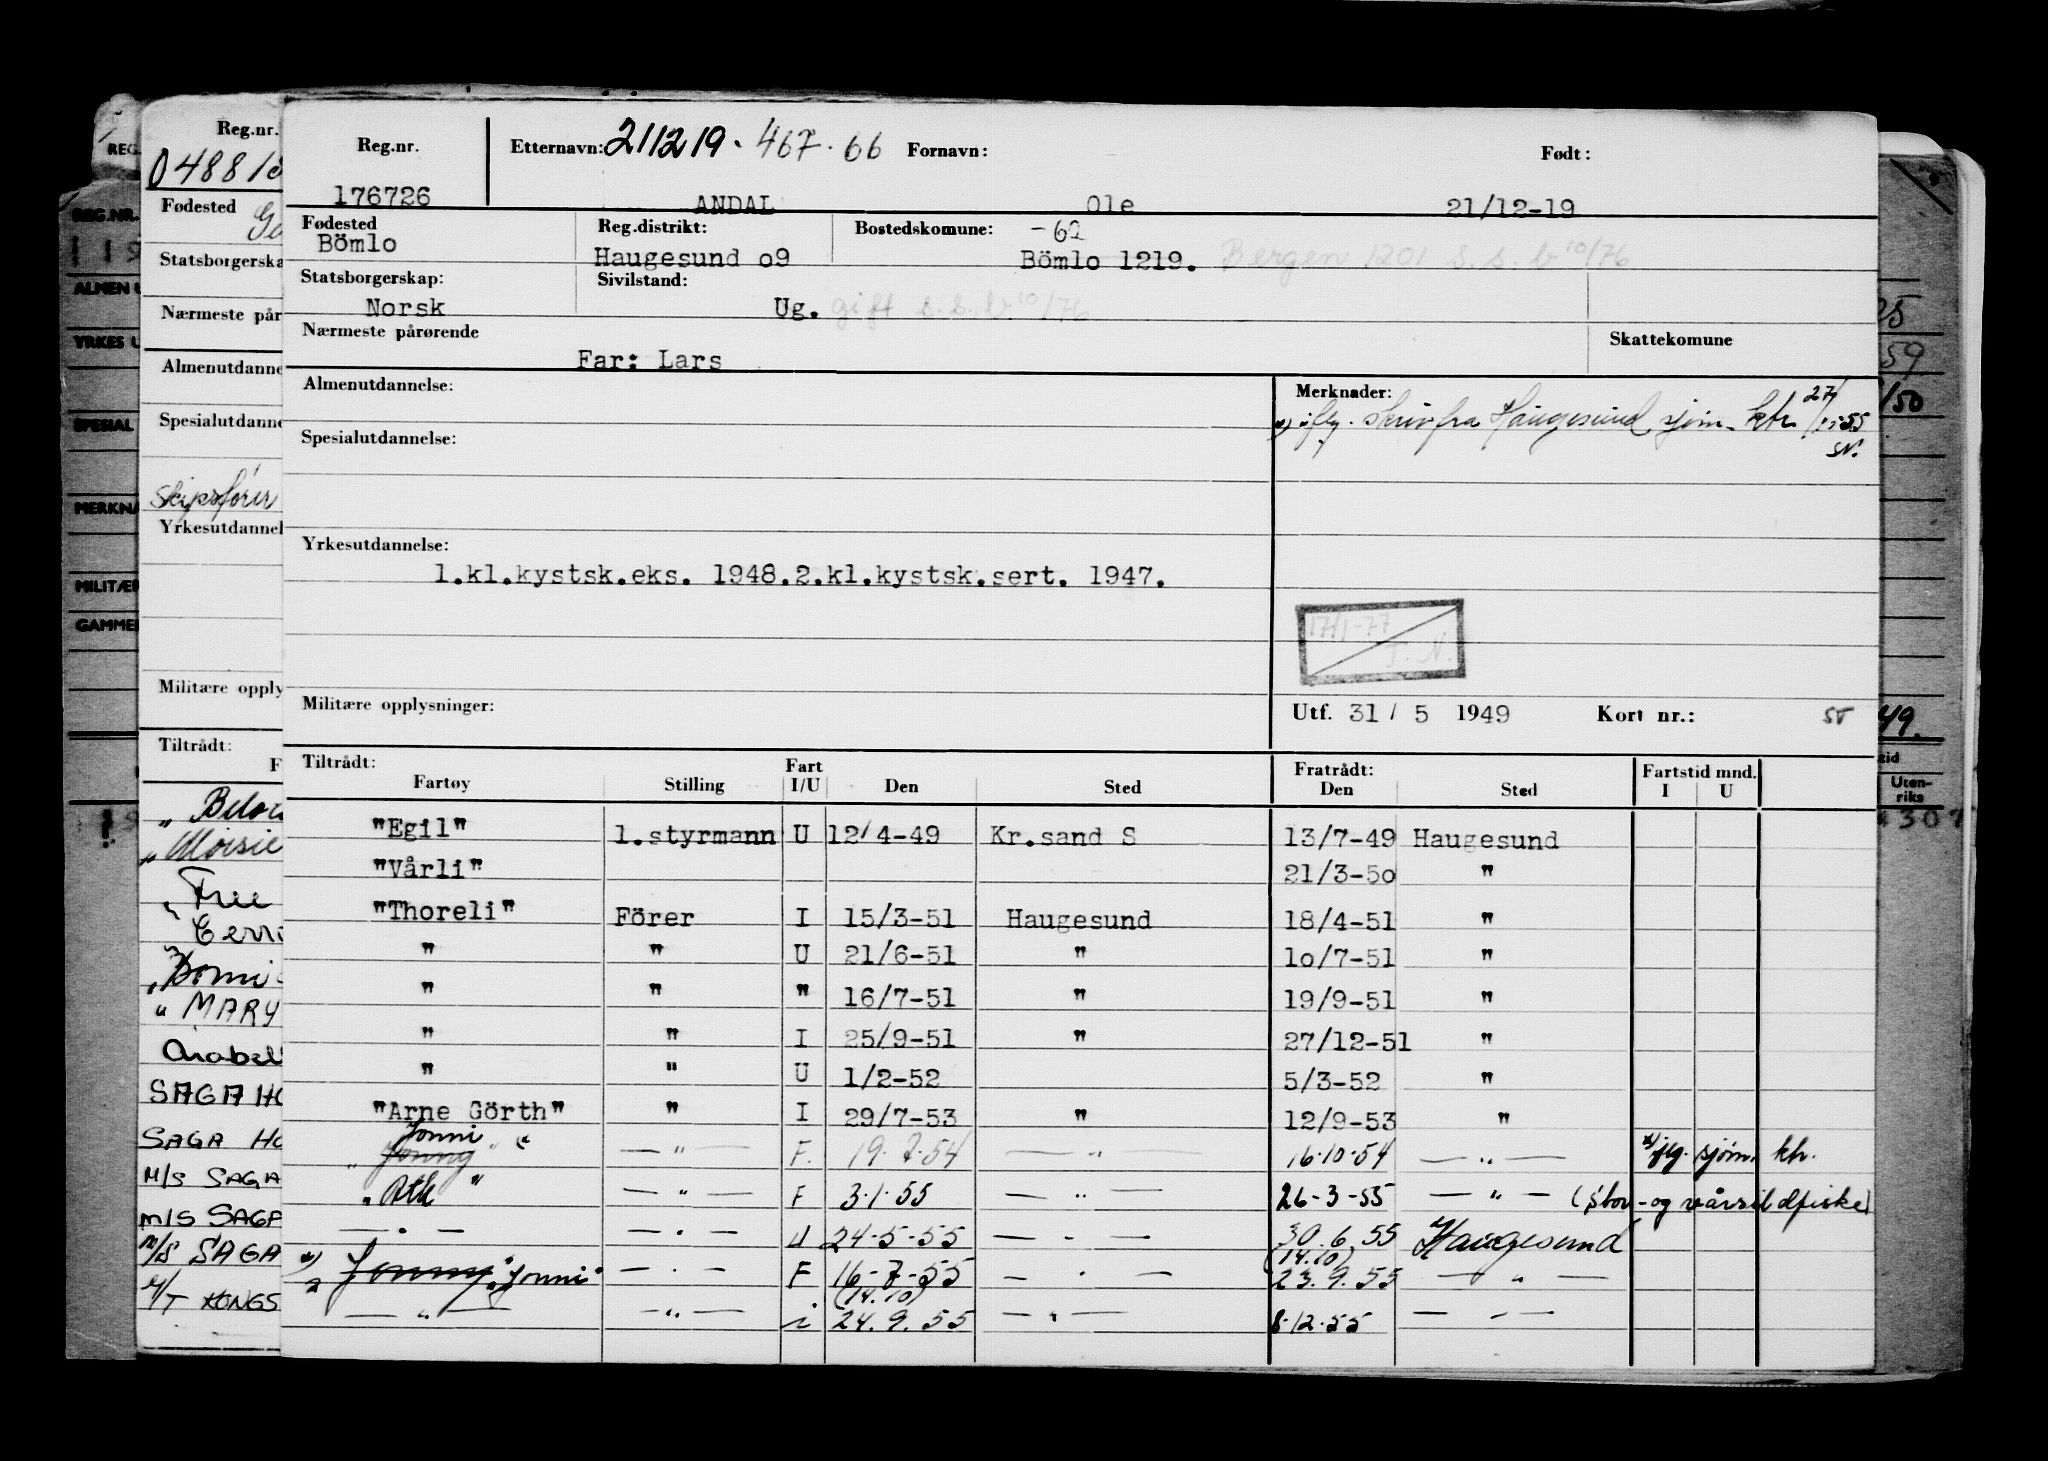 Reg.nr. Etternavn: 211219 · 467 · 66 Fornavn: Født:
176726 ANDAL Ole 21/12-19
Fødested Reg.distrikt: Bostedskomune: -62
Bömlo Haugesund o9 Bömlo 1219. Bergen 1201 s.s.b 10/76
Statsborgerskap: Sivilstand:
Norsk Ug. gift s.s.b. 10/76
Nærmeste pårørende Skattekomune
Far: Lars
Almenutdannelse: Merknader:
x) iflg. skriv fra Haugesund sjøm. ktr 27/ -55
SN.
Spesialutdannelse:
Yrkesutdannelse:
1.kl.kystsk.eks. 1948.2.kl.kystsk.sert. 1947.
17/1-77
T. N.
Militære opplysninger: Utf. 31 / 5 1949 Kort nr.:
Tiltrådt: Fart Fratrådt: Fartstid mnd.
Fartøy Stilling I/U Den Sted Den Sted I U
"Egil" 1.styrmann U 12/4-49 Kr.sand S 13/7-49 Haugesund
"Vårli" 21/3-5o "
"Thoreli" Förer I 15/3-51 Haugesund 18/4-51 "
" " U 21/6-51 " 1o/7-51 "
" " " 16/7-51 " 19/9-51 "
" " I 25/9-51 " 27/12-51 "
" " U 1/2-52 5/3-52 "
"Arne Görth" " I 29/7-53 " 12/9-53 "
Jonni
" Jonny " — " — F. 19.7.54 — " — 16.10.54 — " — x) iflg. sjøm. ktr.
" " — " — F 3.1.55 — " — 26-3-55 — " — (stor- og vårsildfiske)
— " — — " — U 24-5-55 — " — 30.6.55 Haugesund
(14.10)
x) " Jonny "Jonni" — " — F 16-7-55 — " — 23.9.55 — " —
(14.10)
— " — — " — i 24.9.55 — " — 8.12.55 — " —
Reg.nr.
Fødested
Statsborgerska
Nærmeste pår
Almenutdanne
Spesialutdanne
Skipsfører
Yrkesutdannel
Militære opply
Tiltrådt:
F
" Free
" MARY
Arabell
SAGA HO
SAGA HO
M/S SAGA
M/S SAGA
M/S SAGA
M/T KONGS
REG.NR.
ALMEN U
YRKES U
SPESIAL
MERKNA
MILITÆR
GAMMEL
25
59
/50
49.
tid
Uten-
riks
307